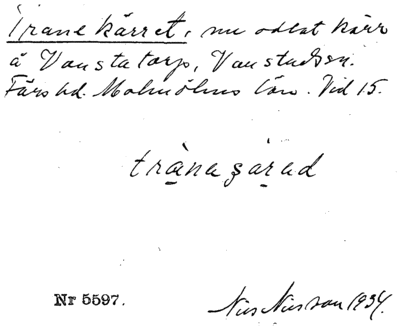 Tranekärret, nu odlat kärr
å Vanstatorp, Vanstadsn.
Färs hd. Malmöhus län. Vid 15.
tràna ʂärad
Nr 5597.
Nils Nilsson 1934.